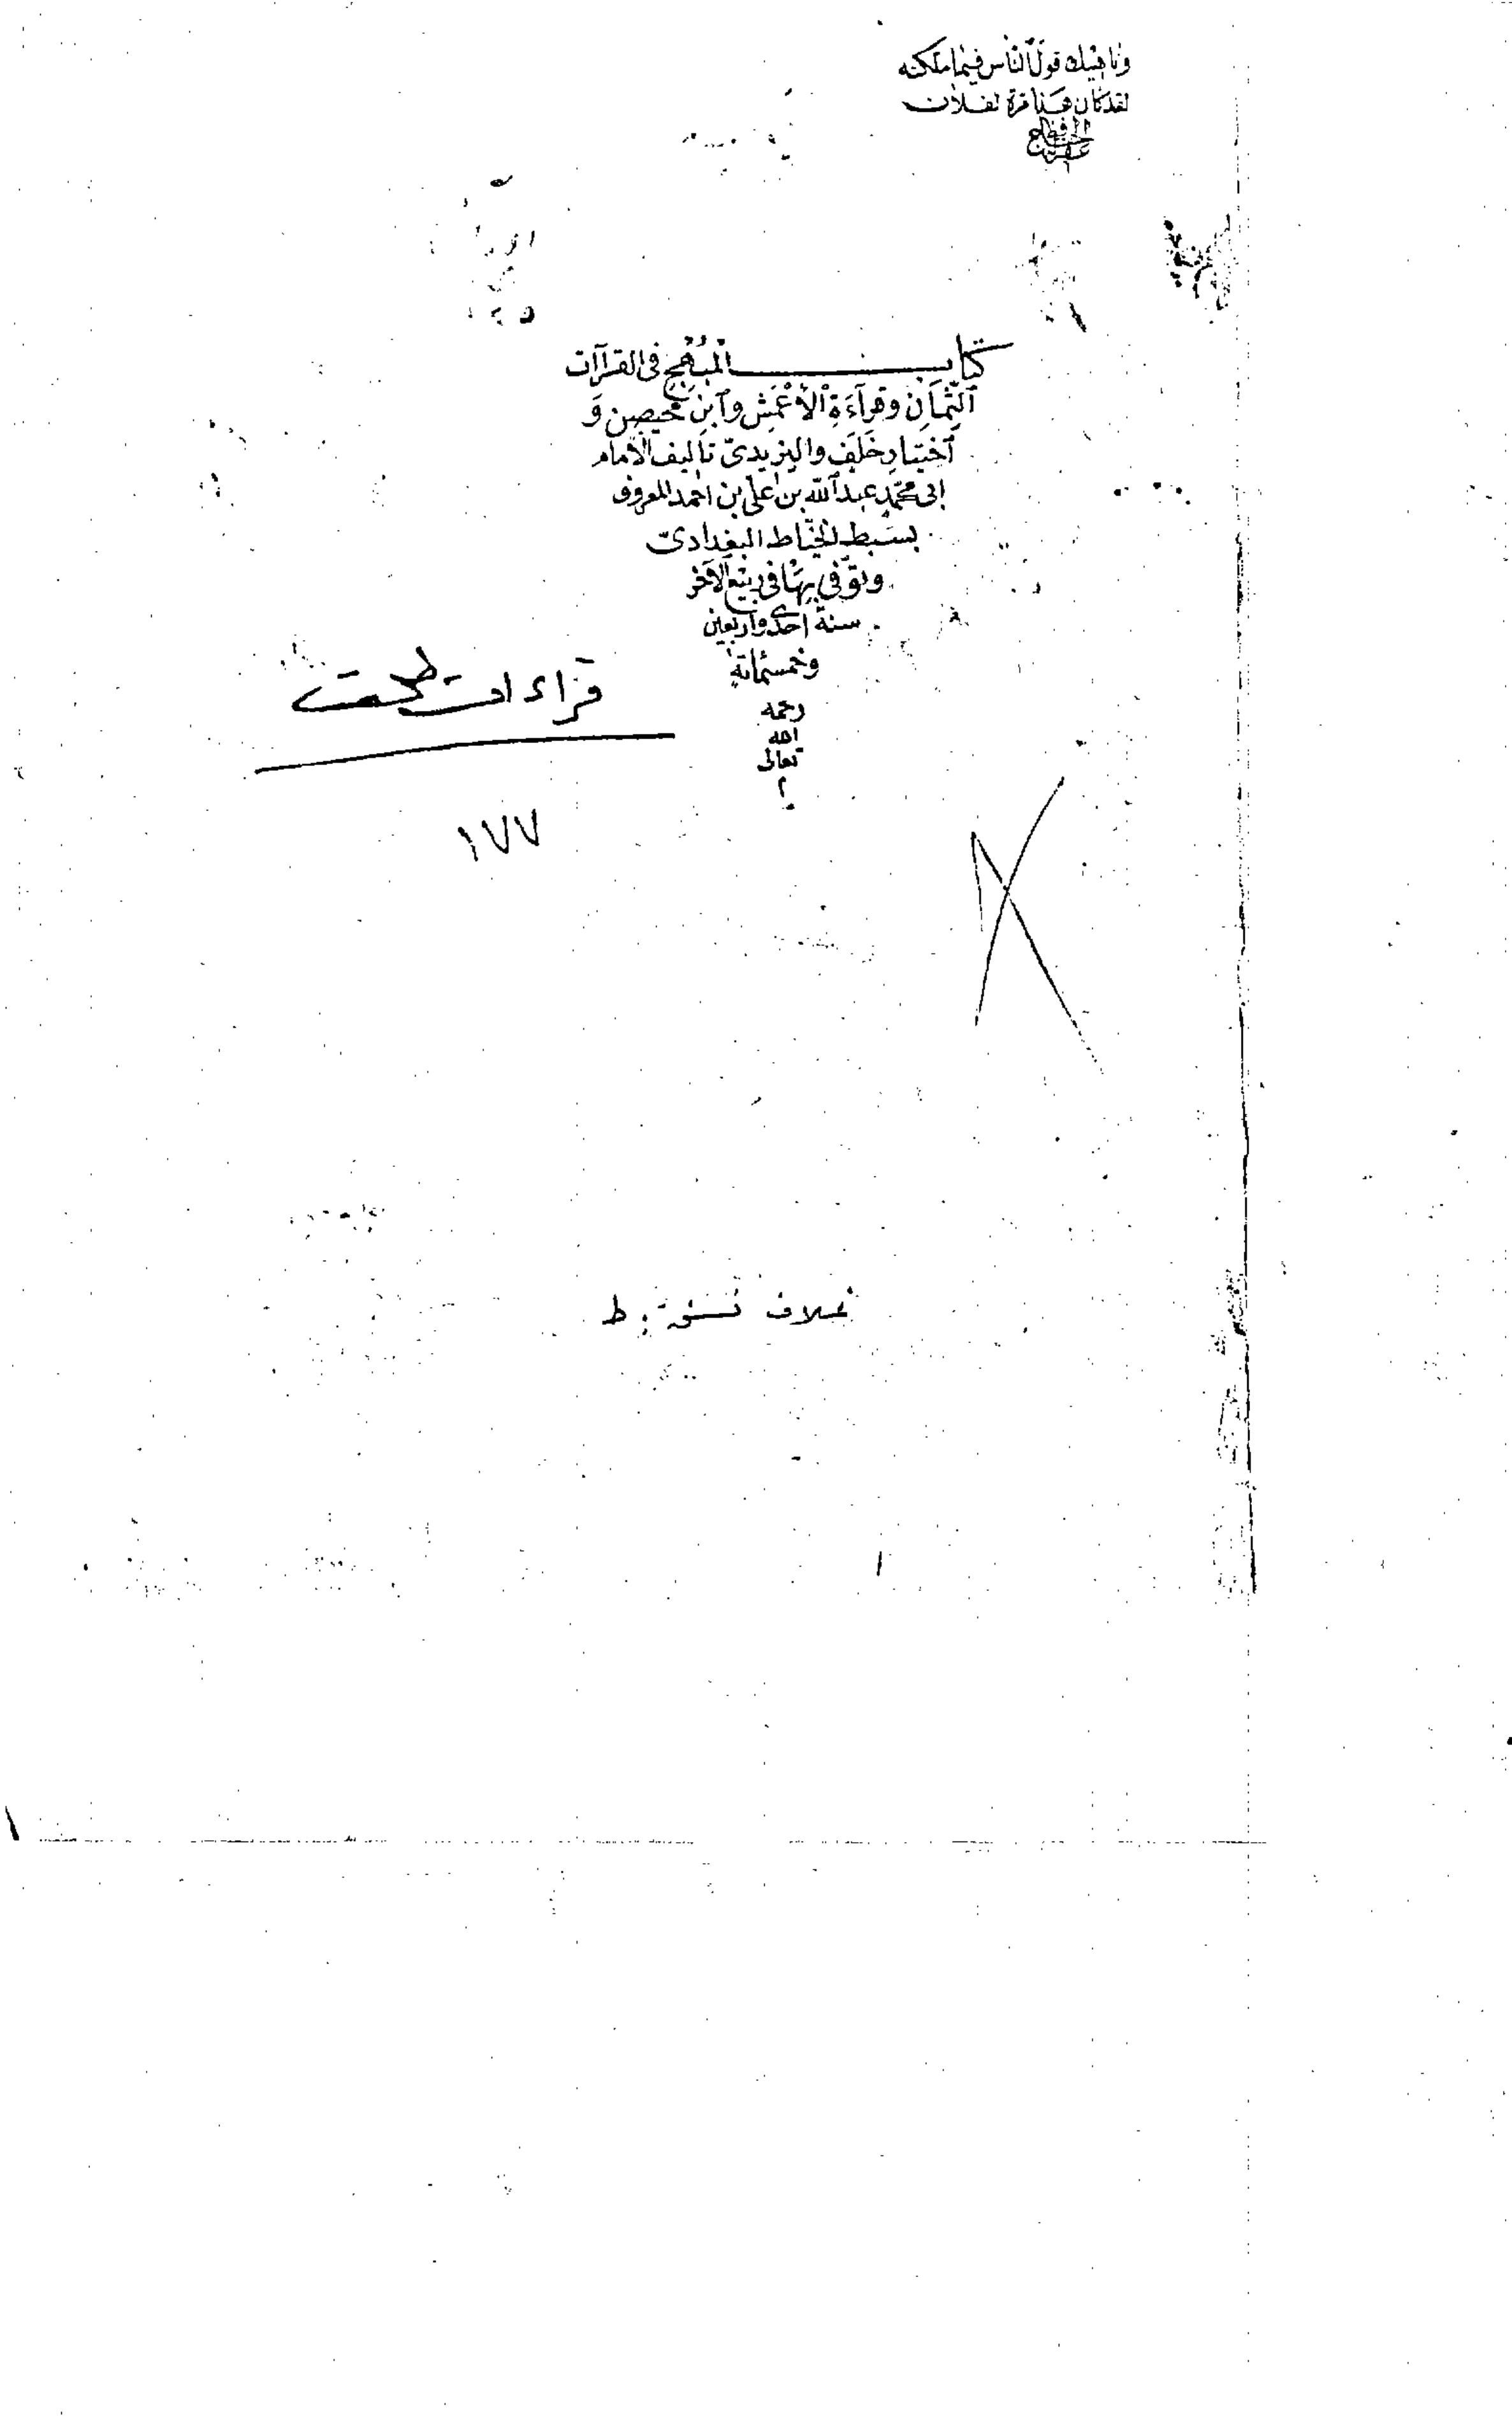 وناهيك قول الناس فيما ملكته
لقد كان هذا مرة لفلان
كتاب المبهج في القرآآت
ٱلثَّمَانِ وقرآءَةِ ٱلأَعْمَشِ وٱبنِ محيصِن وَ
ٱختيارِ خَلَفٍ واليزيدىّ تأليف الامام
ابى محمّدٍ عبد ٱلله بن على بن احمد المعروف
بسبط الخيّاط البغدادىّ
وتوفّى بها فى ربيع الآخر
سنة احدى واربعين
وخمسمائة
رحمه
الله
تعالى
م
قراءات طلعت
١٧٧
غلاف نسخة: ط
١